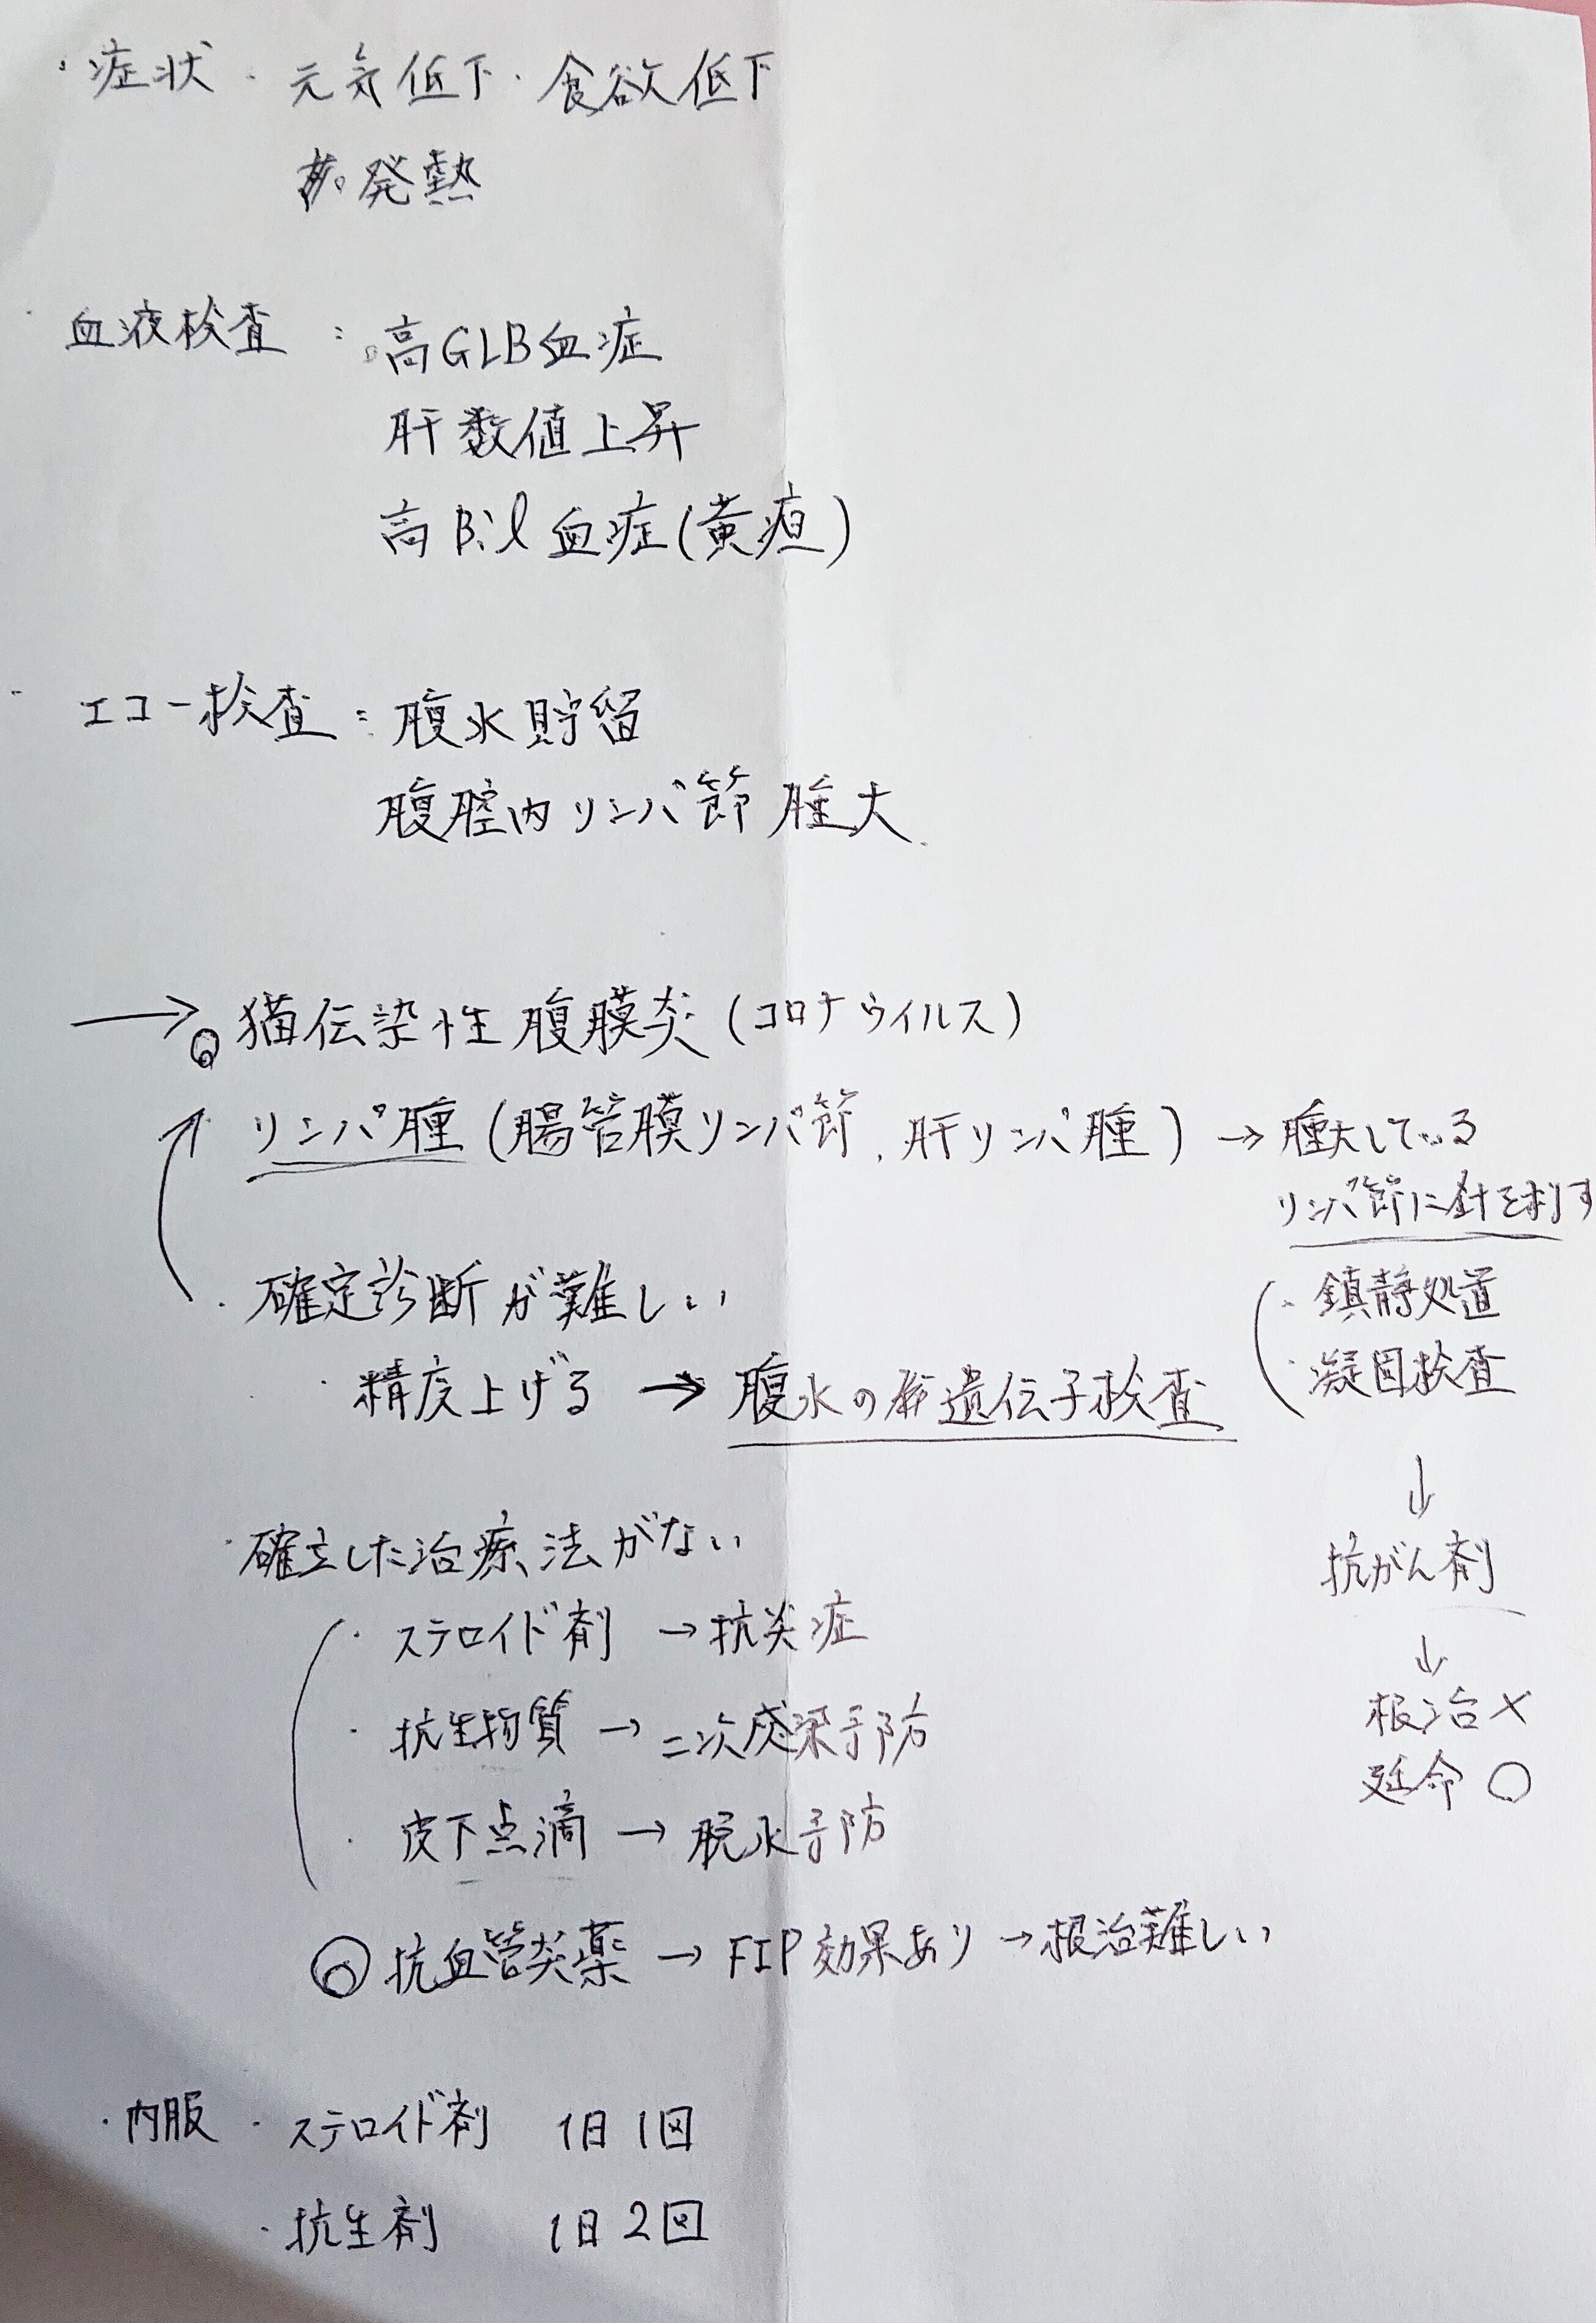 ・症状・元気低下・食欲低下
発熱
・血液検査：高GLB血症
肝数値上昇
高Bil血症(黄疸)
・エコー検査：腹水貯留
腹腔内リンパ節腫大
→◎猫伝染性腹膜炎(コロナウイルス)
リンパ腫(腸管膜リンパ節、肝リンパ腫)→腫大している
リンパ節に針を刺す
・鎮静処置
・凝固検査
↓
抗がん剤
↓
根治×
延命○
・確定診断が難しい
・精度上げる→腹水の遺伝子検査
・確立した治療法がない
・ステロイド剤→抗炎症
・抗生物質→二次感染予防
・皮下点滴→脱水予防
◎抗血管炎薬→FIP効果あり→根治難しい
・内服・ステロイド剤 1日1回
・抗生剤 1日2回